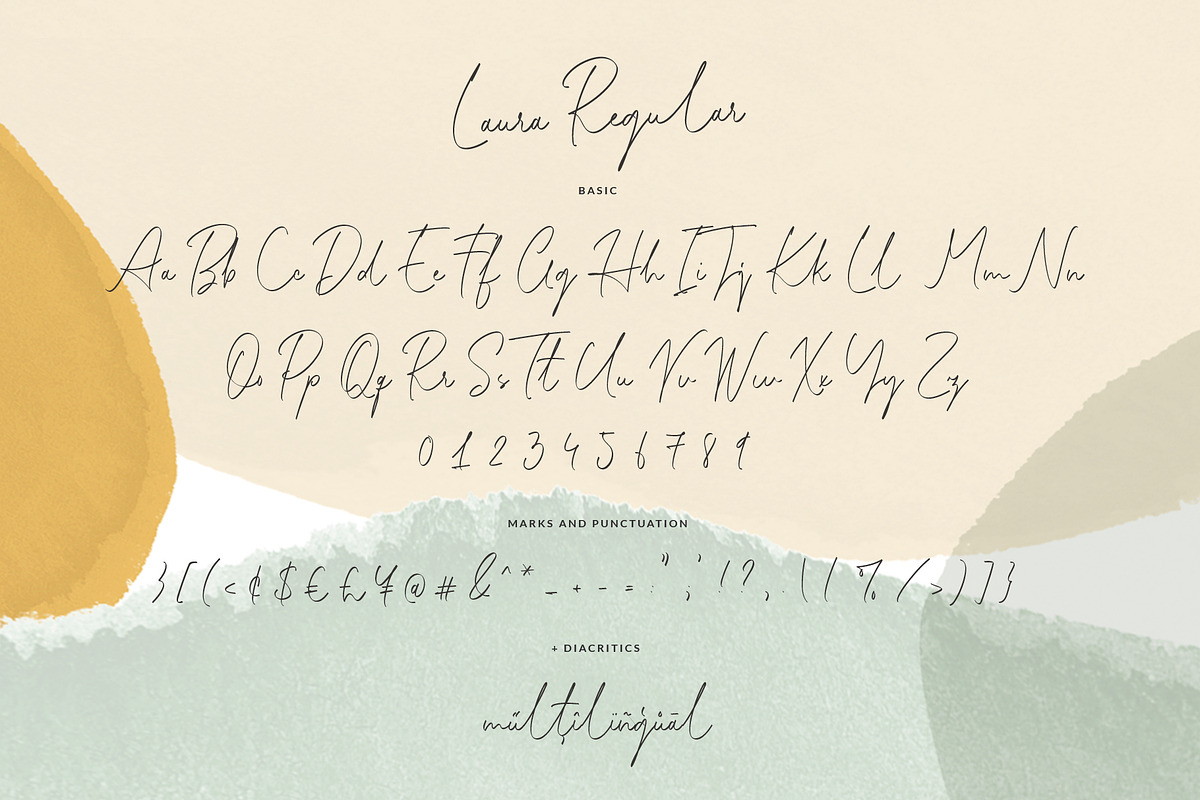 Laura Regular
BASIC
Aa Bb Cc Dd Ee Ff Gg Hh Ii Jj Kk Ll Mm Nn
Oo Pp Qq Rr Ss Tt Uu Vv Ww Xx Yy Zz
0 1 2 3 4 5 6 7 8 9
MARKS AND PUNCTUATION
} [ ( < ¢ $ € £ ¥ @ # & ^ * _ + - = : " ; ' ! ? , . \ | % / > ) ] }
+ DIACRITICS
műlţîlïñģůāl